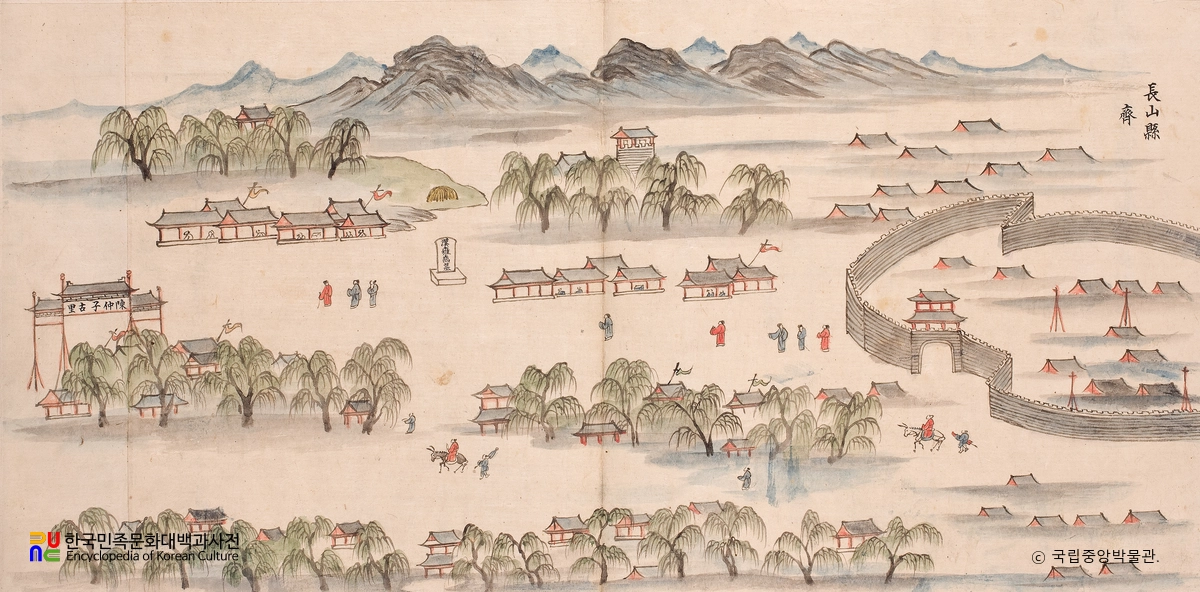 長山縣
齊
里古子仲陳
한국민족문화대백과사전
Encyclopedia of Korean Culture
© 국립중앙박물관.